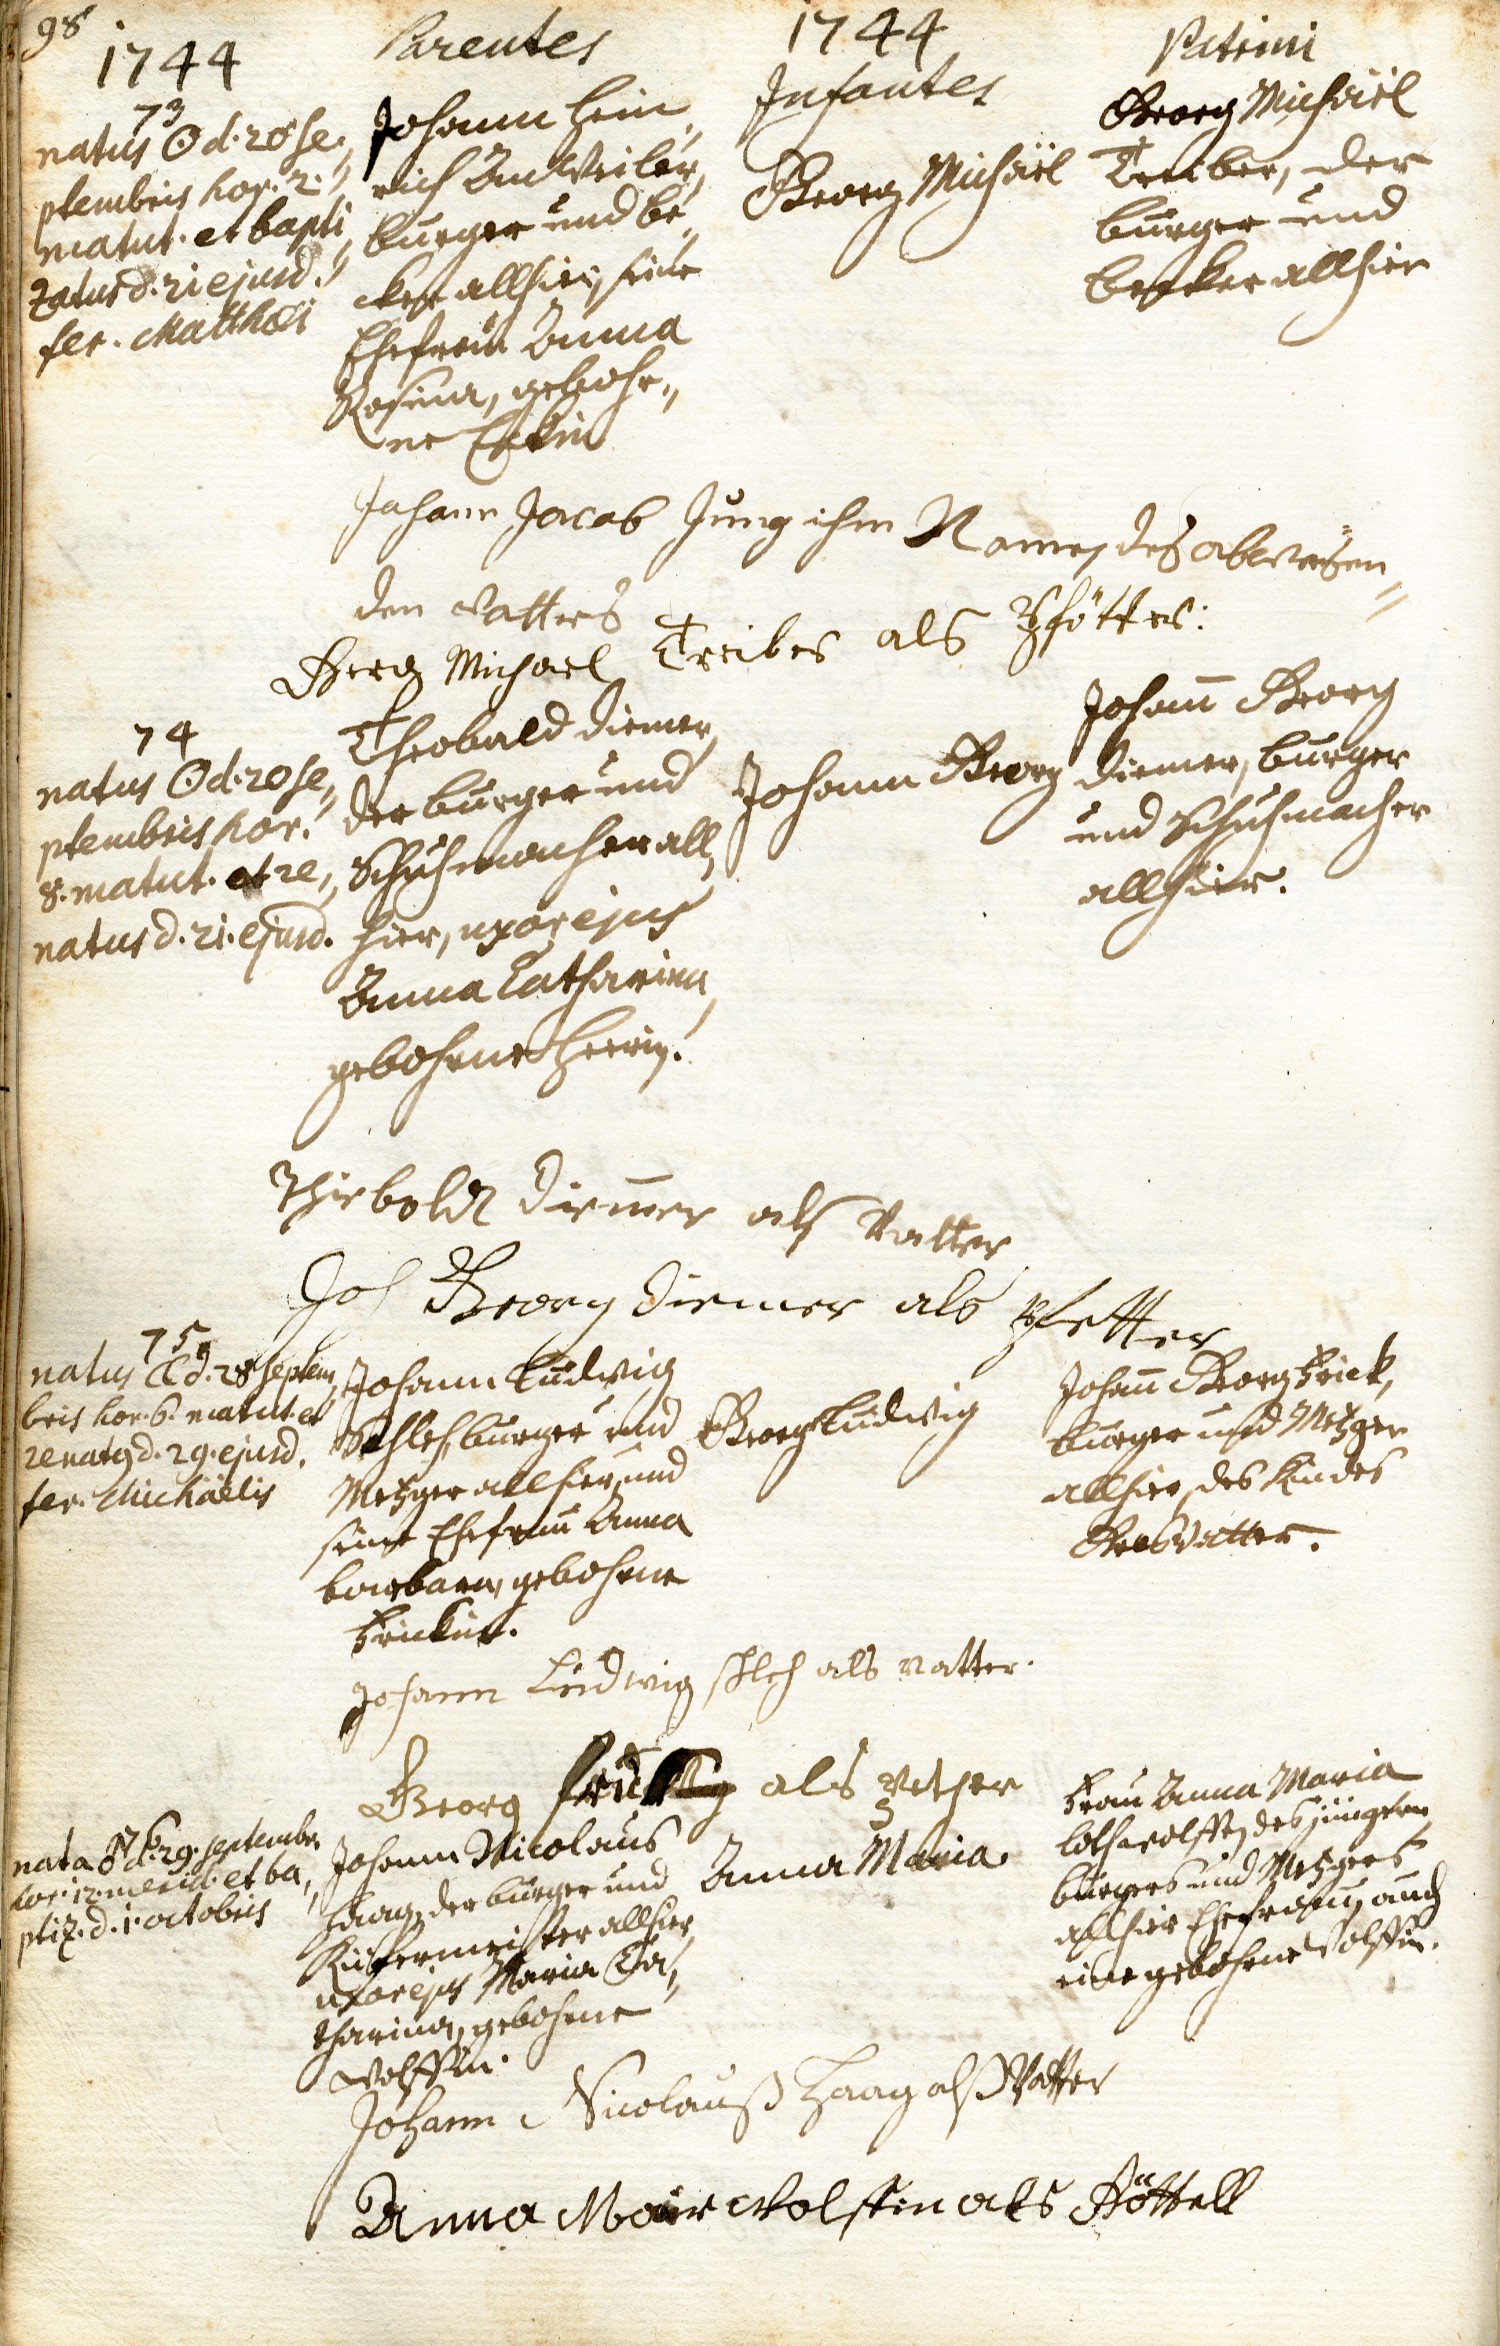 98
1744
Parentes
1744
Infantes
Patrini
73
natus ☉ d. 20 Se„
ptembris hor. 2.
matut. et bapti„
zatus d. 21 ejusd.
fer. Matthæi
Johann Hein„
rich Anweiler,
burger und be„
cker allhier, seine
Ehefrau Anna
Rosina, gebohr„
ne
Georg Michaël
Georg Michaël
Treiber, der
burger und
becker allhier
Johann Jacob Jung ihm Namen des abwesen„
den vatters
Gerg Michael Treiber als Pfötter:
74
natus ☉ d. 20 Se„
ptembris hor.
8. matut. et re„
natus d. 21. ejusd.
Theobald Diemer,
der burger und
Schuhmacher all„
hier, uxor ejus
Anna Catharina,
gebohrne Herrin.
Johann Georg
Johann Georg
Diemer, burger
und Schuhmacher
allhier.
Thiebold Diemer als Vatter
Joh Georg Diemer als Pfetter
75
natus ☾ d. 28 Septem„
bris hor. 6. matut. et
renatus d. 29. ejusd.
fer. Michaëlis
Johann Ludwig
burger und
Metzger allhier, und
seine Ehefrau Anna
barbara, gebohrne
Frickin.
Georg Ludwig
Johann Georg Frick,
burger und Metzger
allhier, des Kindes
Grosvatter.
Johann Ludwig als vatter.
Georg als
76
nata ♂ d. 29. Septembr.
hor. 12. merid. et ba„
ptiz. d. 1. octobris
Johann Nicolaus
Haag, der burger und
Küfermeister allhier,
uxor ejus Maria Ca„
tharina, gebohrne
Wolffin.
Anna Maria
Frau Anna Maria
des jüngern
burgers und Metzgers
allhier Ehefrau, auch
eine gebohrne Wolffin.
Johann Nicolauß Haag alß Vatter
Anna Wolffin als Göttell